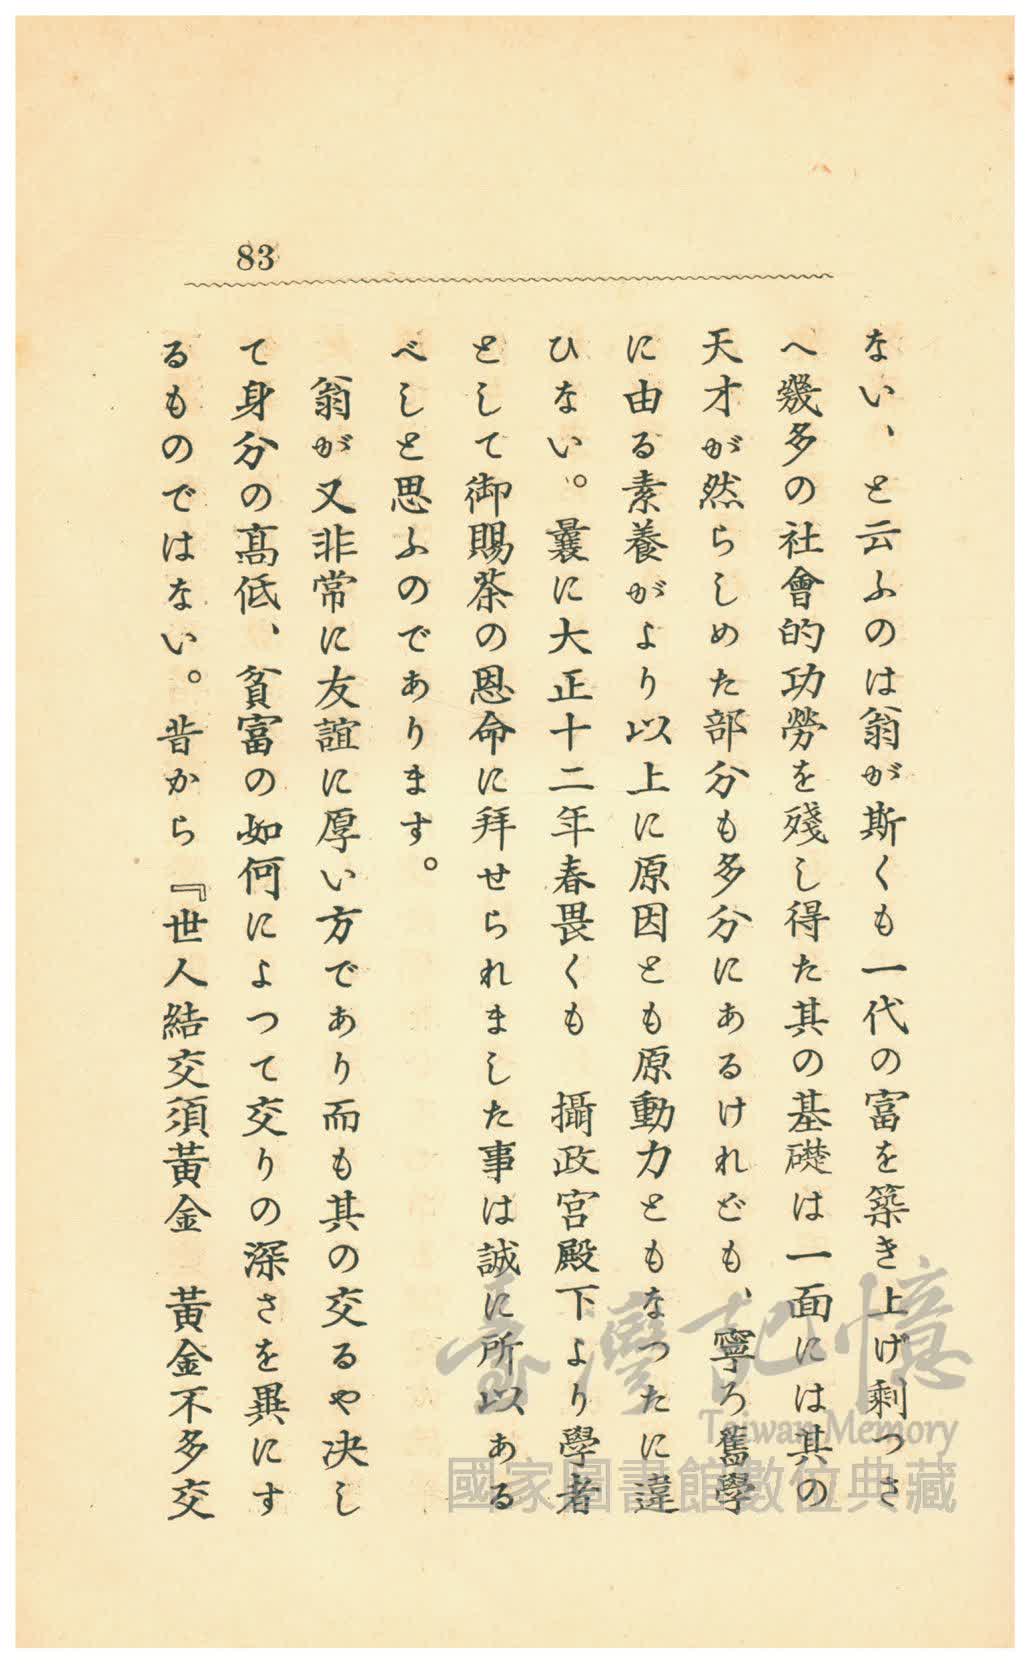 83
ない、と云ふのは翁が斯くも一代の富を築き上げ剩つさ
へ幾多の社會的功勞を殘し得た其の基礎は一面には其の
天才が然らしめた部分も多分にあるけれども、寧ろ舊學
に由る素養がより以上に原因とも原動力ともなつたに違
ひない。曩に大正十二年春畏くも　攝政宮殿下より學者
として御賜茶の恩命に拜せられました事は誠に所以ある
べしと思ふのであります。
翁が又非常に友誼に厚い方であり而も其の交るや決し
て身分の高低、貧富の如何によつて交りの深さを異にす
るものではない。昔から『世人結交須黃金　黃金不多交
臺灣記憶
Taiwan Memory
國家圖書館數位典藏